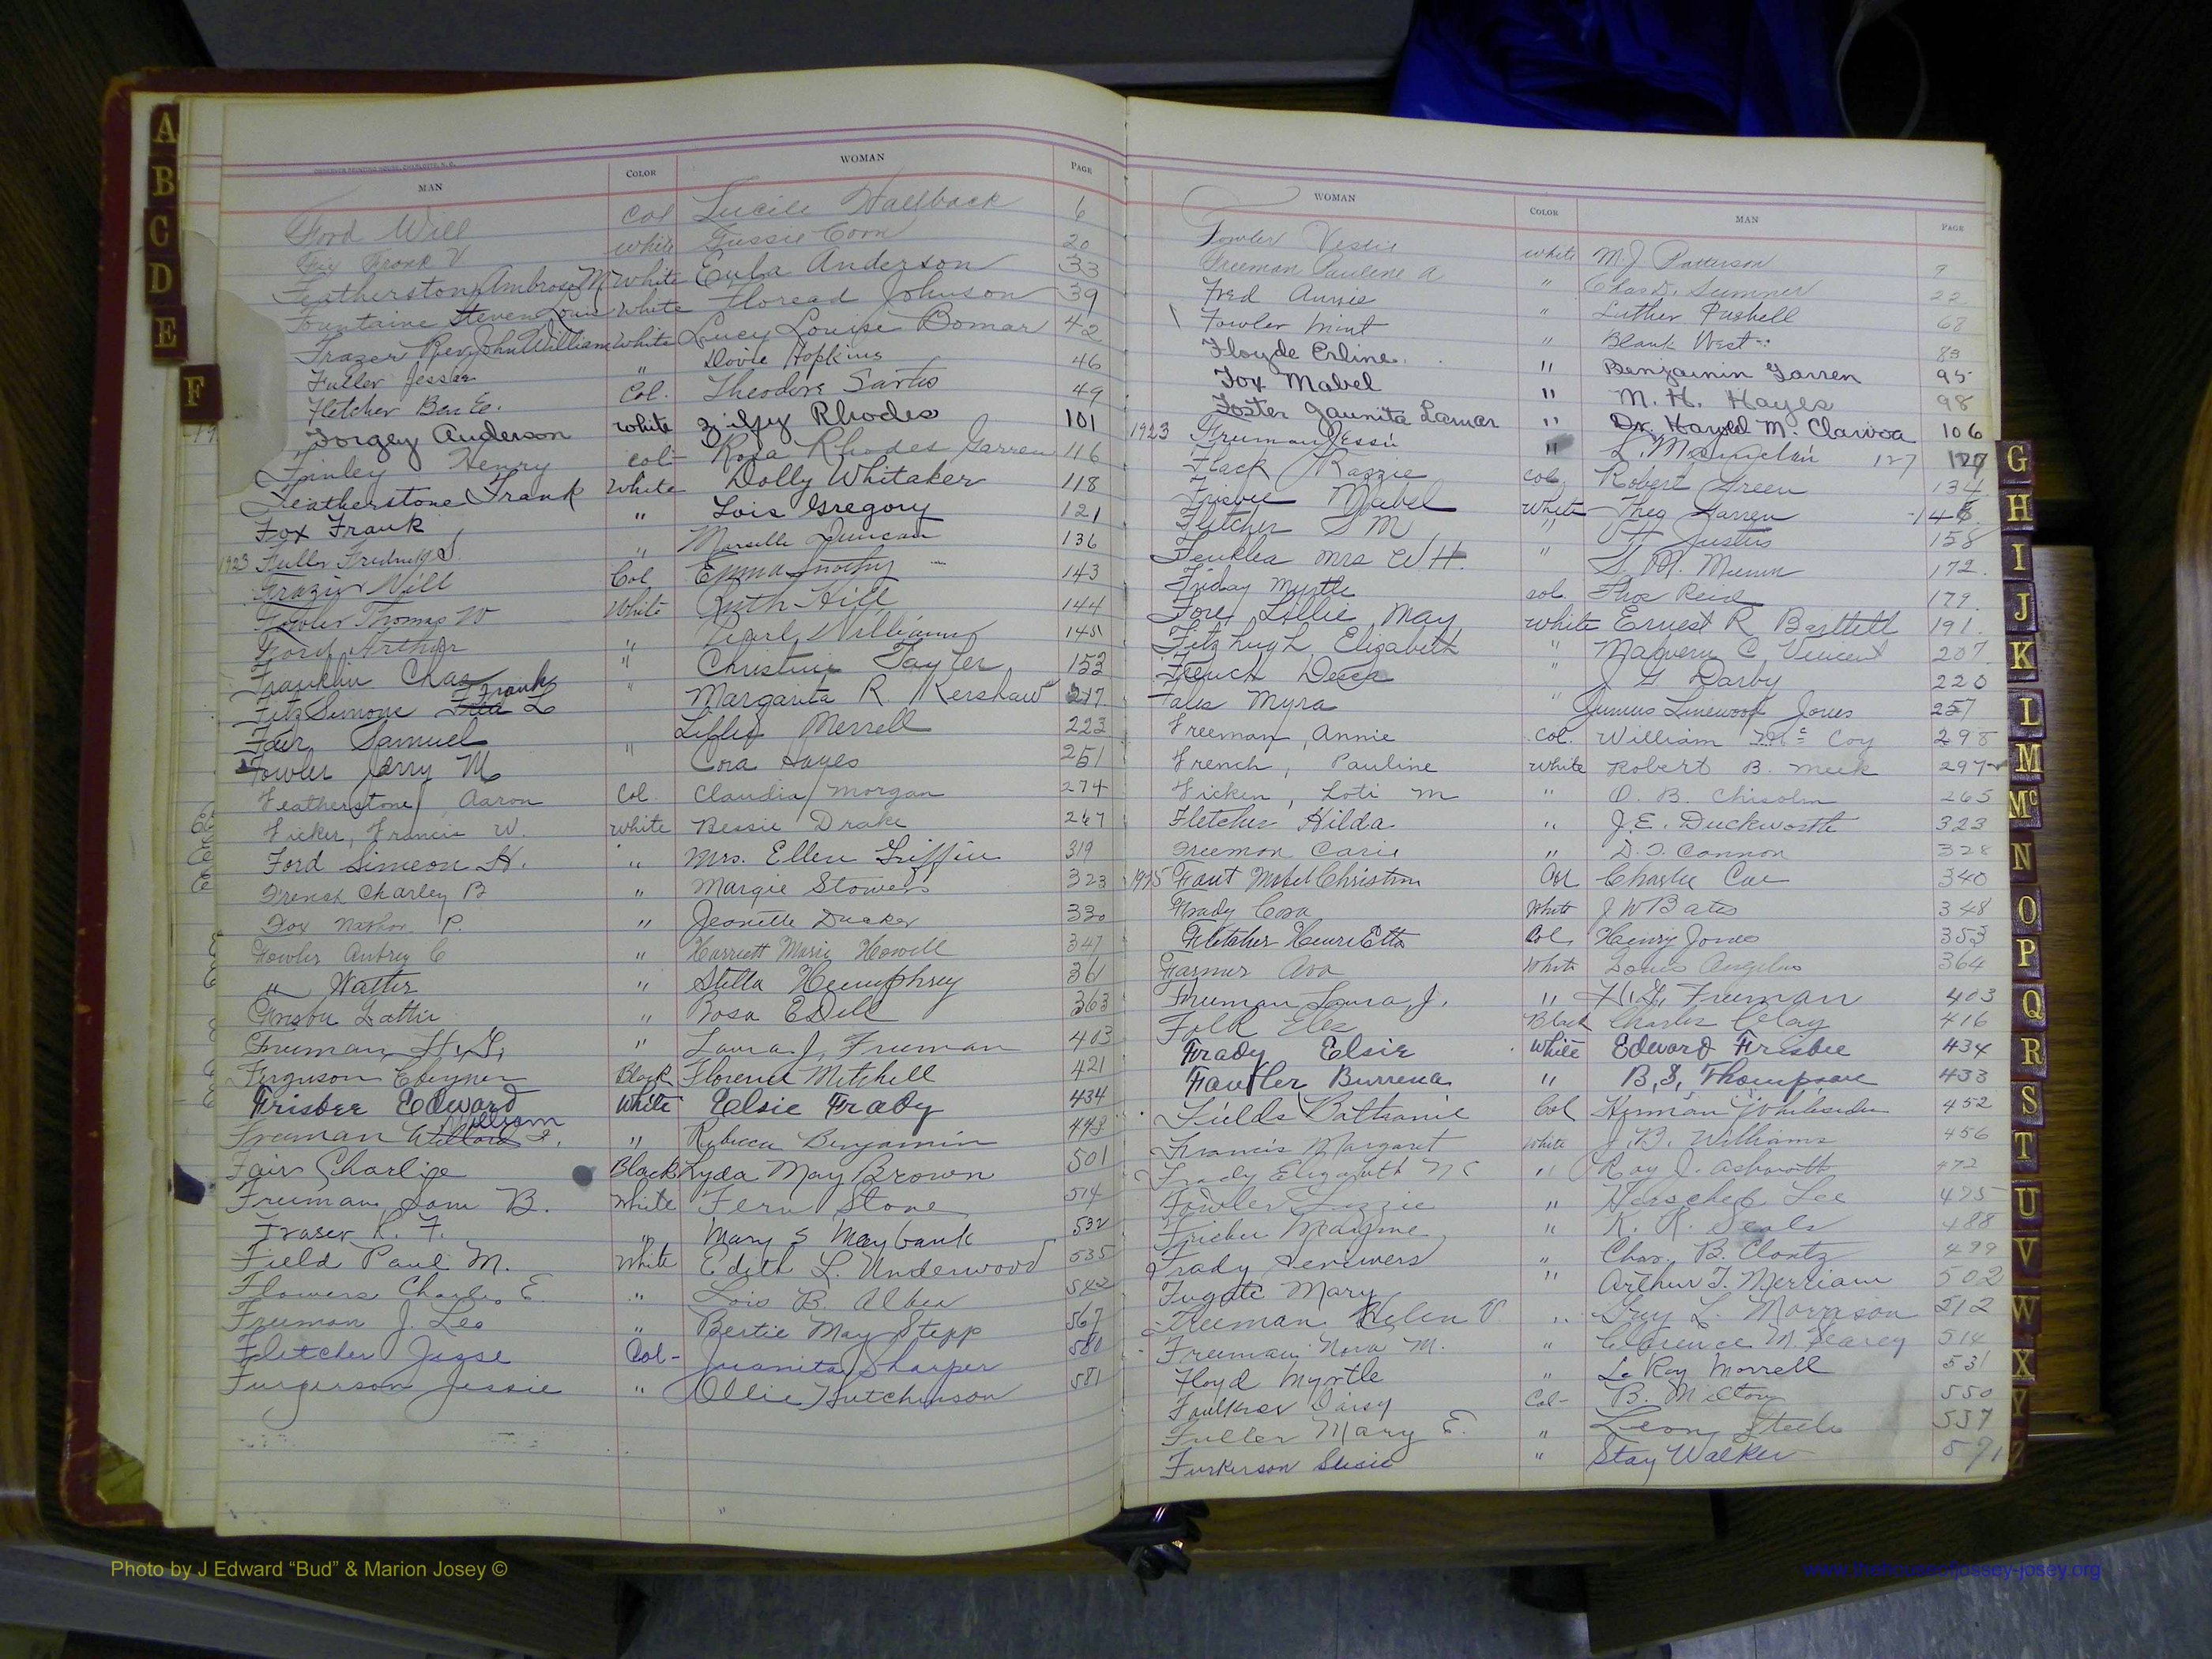 OBSERVER PRINTING HOUSE, CHARLOTTE, N. C.
MAN COLOR WOMAN PAGE
Ford Will Col Lucile Hallback 6
Fix Frank V white Tussie Corn 20
Featherstone Ambrose M White Eula Anderson 33
Fountaine Steven Louis White Floread Johnson 39
Frazer Rev John William White Lucy Louise Bomar 42
Fuller Jesse " Dovie Hopkins 46
Fletcher Ben E. Col. Theodore 49
Forgey Anderson white Zilfy Rhodes 101
Finley Henry col- Rosa Rhodes Garren 116
Featherstone Frank White Dolly Whitaker 118
Fox Frank " Lois Gregory 121
1923 Fuller Fredrick S. " Marselle Duncan 136
Frazier Will Col Emma 143
Fowler Thomas W White Ruth Hill 144
Ford Arthur " Pearl Williams 145
Franklin Chas " Christine Tayler 153
FitzSimons Frank L " Margarita R. Kershaw 217
Fair Samuel Liffie Merrell 223
Fowler Jerry M " Cora Hayes 251
Featherstone Aaron Col. Claudia Morgan 274
Ficker, Francis W. White Bessie Drake 267
Ford Simeon H. " Mrs. Ellen Griffin 319
French Charley B " Margie Stowers 323
Fox P. " Jeanette Ducker 330
Fowler Aubrey C " Harriett Marie Howell 347
" Walter " Stella Humphrey 361
Lattie " Rosa Edell 363
Freeman, H. G, " Laura J, Freeman 403
Ferguson Black Florence Mitchell 421
Frisbee Edward White Elsie Frady 434
William
Freeman " Rebecca Benjamin 448
Fair Charlie Black Lyda May Brown 501
Freeman, Sam B. White Fern Stone 514
Fraser R. F. " Mary S Maybank 532
Field Paul M. White Edith L. Underwood 535
Flowers Charles E " Lois B. Albea 542
Freeman J. Leo " Bertie May Stepp 567
Fletcher Jesse Col- Juanita Sharper 580
Furgerson Jessie " Ollie Hutchinson 581
WOMAN COLOR MAN PAGE
Fowler Vestie white M.J. Patterson 9
Freeman Paulene A " Chas D. Sumner 22
Fred Annie " Luther Pushell 68
Fowler Mint " Blank West 83
Floyde Erline " Benjamin Garren 95
Fox Mabel " M. H. Hayes 98
Foster Jaunita Lamar " Dr. Harold M. Clarvoa 106
1923 Freeman Jessie " L. 127 127
Flack Razzie col Robert Green 134
Frisbee Mabel White Theo Garren 146
Fletcher S M " Justus 158
Mrs W H. " S. M. Munn 172
Friday Myrtle col. Thos Reid 179
Fore Lillie May White Ernest R Bartlett 191
Fitzhugh Elizabeth " Malvern C. Vincent 207
French " J G Darby 220
Fales Myra " Junius Linewood Jones 257
Freeman, Annie Col. William Mc Coy 298
French, Pauline White Robert B. Meek 297
Ficken, Loti M " O. B. Chisolm 265
Fletcher Hilda " J.E. Duckworth 323
Freeman Carie " D. O. Cannon 328
1925 Fant Mabel Christine Col Charlie Coe 340
Frady Cora White J W Bates 348
Fletcher HenriEtta Col Henry Jones 353
Farmer Ava White Louis Angelus 364
Freeman Laura, J. " H. G, Freeman 403
Folk Black Charles Clay 416
Frady Elsie White Edward Frisbee 434
Burrena " B, S, Thompson 433
Fields Bathanie Col Herman Whiteside 452
Francis Margaret White J. B. Williams 456
Frady Elizabeth " Roy J. Ashworth 472
Fowler Lizzie " Herschel Lee 475
Madgme " R. R. Seals 488
Frady " Chas. B. Clontz 499
Fugate Mary " Arthur T. Merriam 502
Freeman Helen V. " Guy L. Morgason 512
Freeman Nora M. " Clarence M. Searcy 514
Floyd Myrtle " Le Roy Morrell 531
Faulkner Daisy Col- B. Milton 550
Fuller Mary E. " Leon Steele 537
Furkerson Susie " Stay Walker 571
A
B
C
D
E
F
G
H
I
J
K
L
M
Mc
N
O
P
Q
R
S
T
U
V
W
X
Y
Z
Photo by J Edward “Bud” & Marion Josey ©
www.thehouseofjossey-josey.org